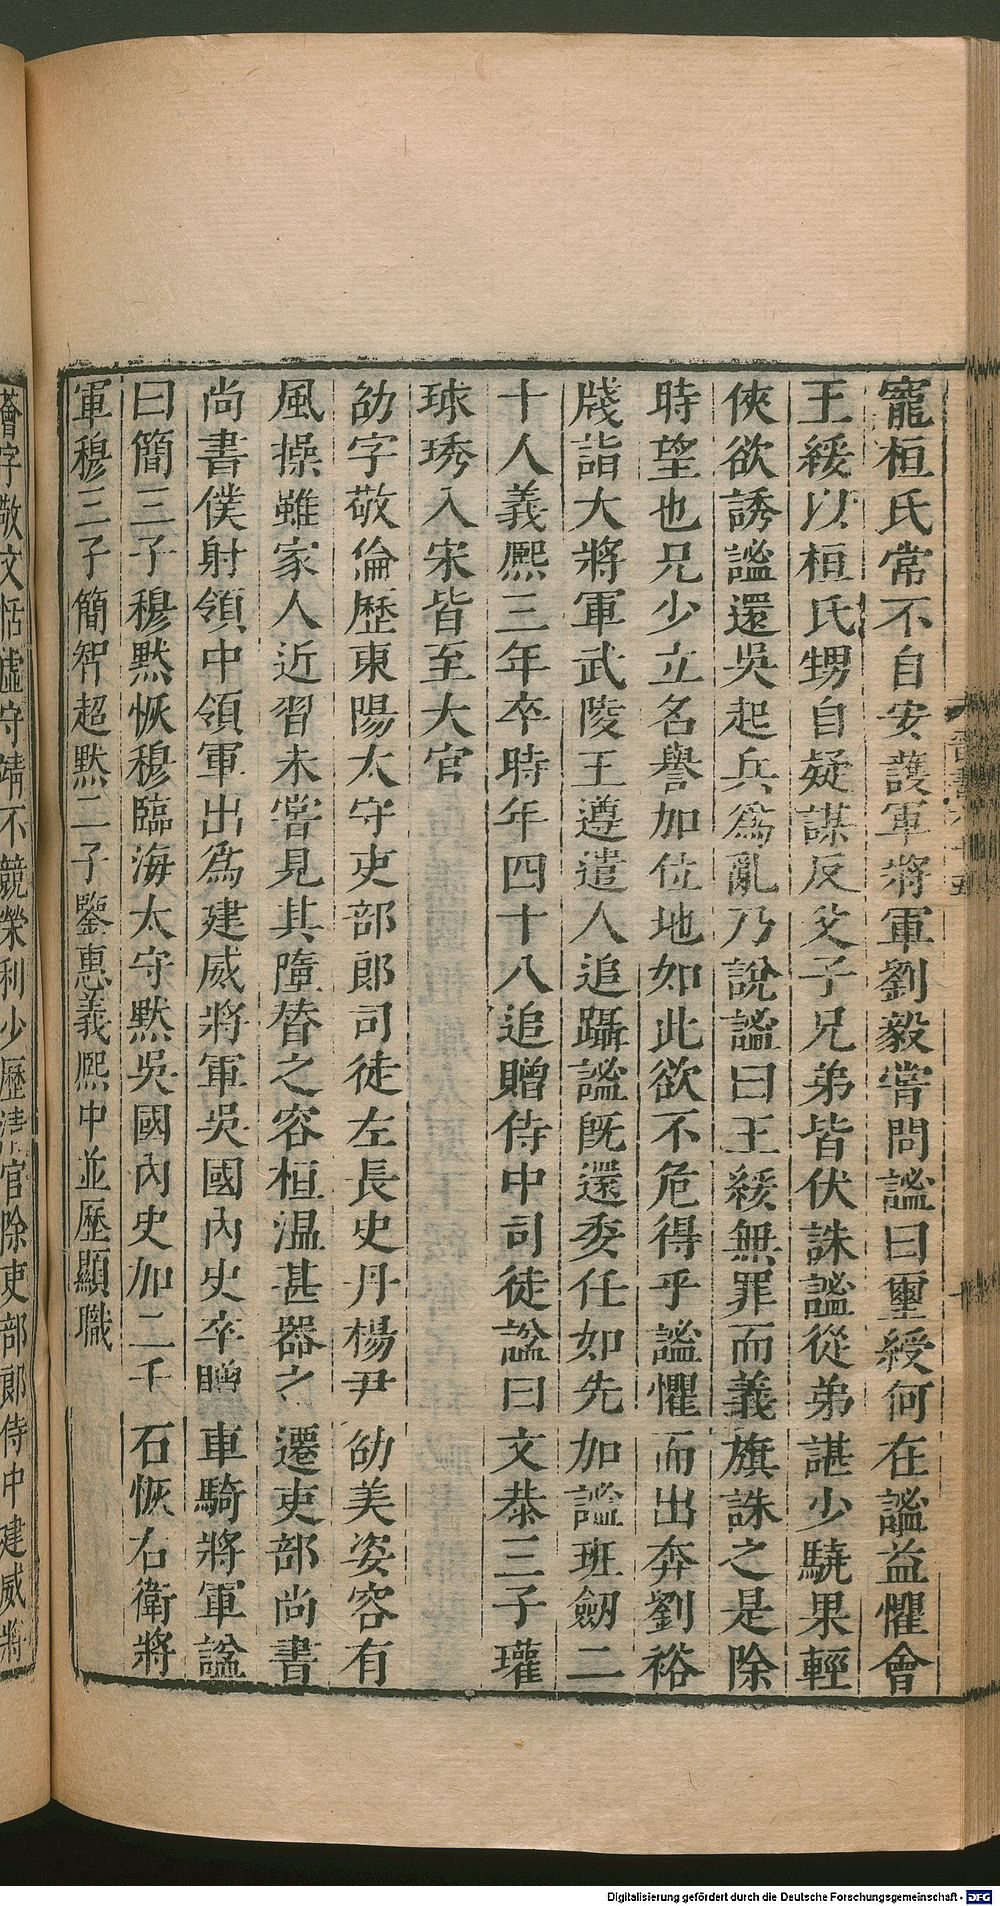 寵桓氏常不自安護軍將軍劉毅嘗問謐曰璽綬何在謐益懼會
王綏以桓氏甥自疑謀反父子兄弟皆伏誅謐從弟諶少驍果輕
俠欲誘謐還吳起兵爲亂乃說謐曰王綏無罪而義旗誅之是除
時望也兄少立名譽加位地如此欲不危得乎謐懼而出奔劉裕
牋詣大將軍武陵王遵遣人追躡謐旣還委任如先加謐班劒二
十人義熙三年卒時年四十八追贈侍中司徒謚曰文恭三子瓘
球琇入宋皆至大官
劭字敬倫歷東陽太守吏部郎司徒左長史丹楊尹劭美姿容有
風操雖家人近習未嘗見其隳替之容桓温甚器之遷吏部尚書
尚書僕射領中領軍出爲建威將軍吳國內史卒贈車騎將軍謚
曰簡三子穆默恢穆臨海太守默吳國內史加二千石恢右衛將
軍穆三子簡智超默二子鑒惠義熙中並歷顯職
薈字敬文恬虛守靖不競榮利少歷清官除吏部郎侍中建威將
晉書六十五
Digitalisierung gefördert durch die Deutsche Forschungsgemeinschaft - DFG